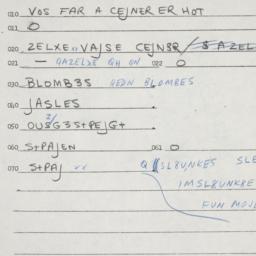 010 VOS FAR A CEJNER ER HOT
011 O
020 ZELXE,, VAJSE CEJNER / S AZEL
021 — GAZELXE GH ON 022 O
030 BLOMB3S HEDN BLOMBES
040 JASLES
050 OUSG3S+PEJG+
060 S+PAJEN 061 O
070 S+PAJ vv Q SL8UNKES SLE
IMSL8UNKBE
FUN MOJL